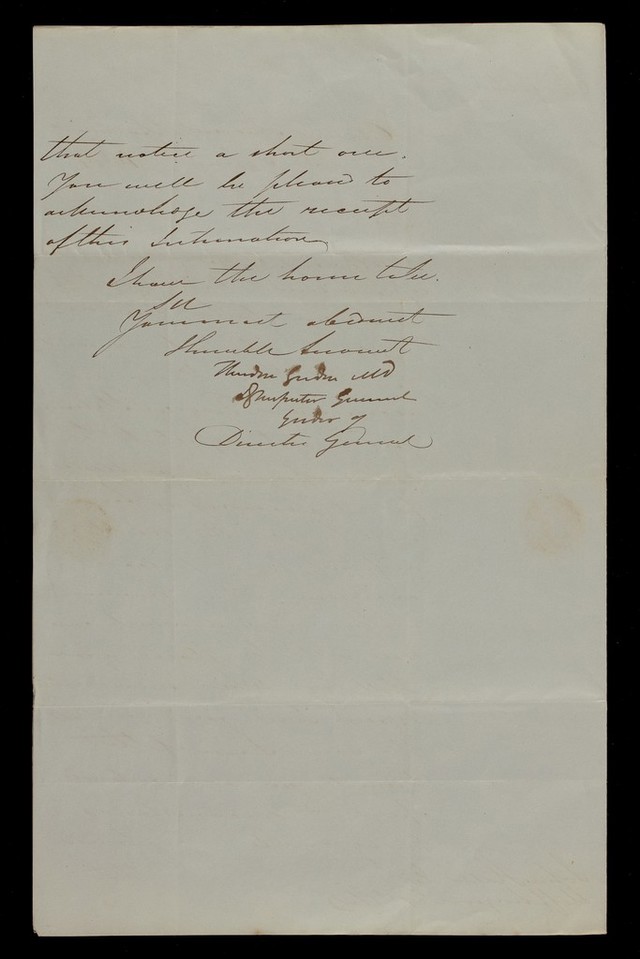 that notice a short one.
You will be pleased to
acknowledge the receipt
of this Intimation
I have the honor to be.
Sir
Your most obedient
Humble Servant
Theodore Gordon MD
Inspector General
for
Director General